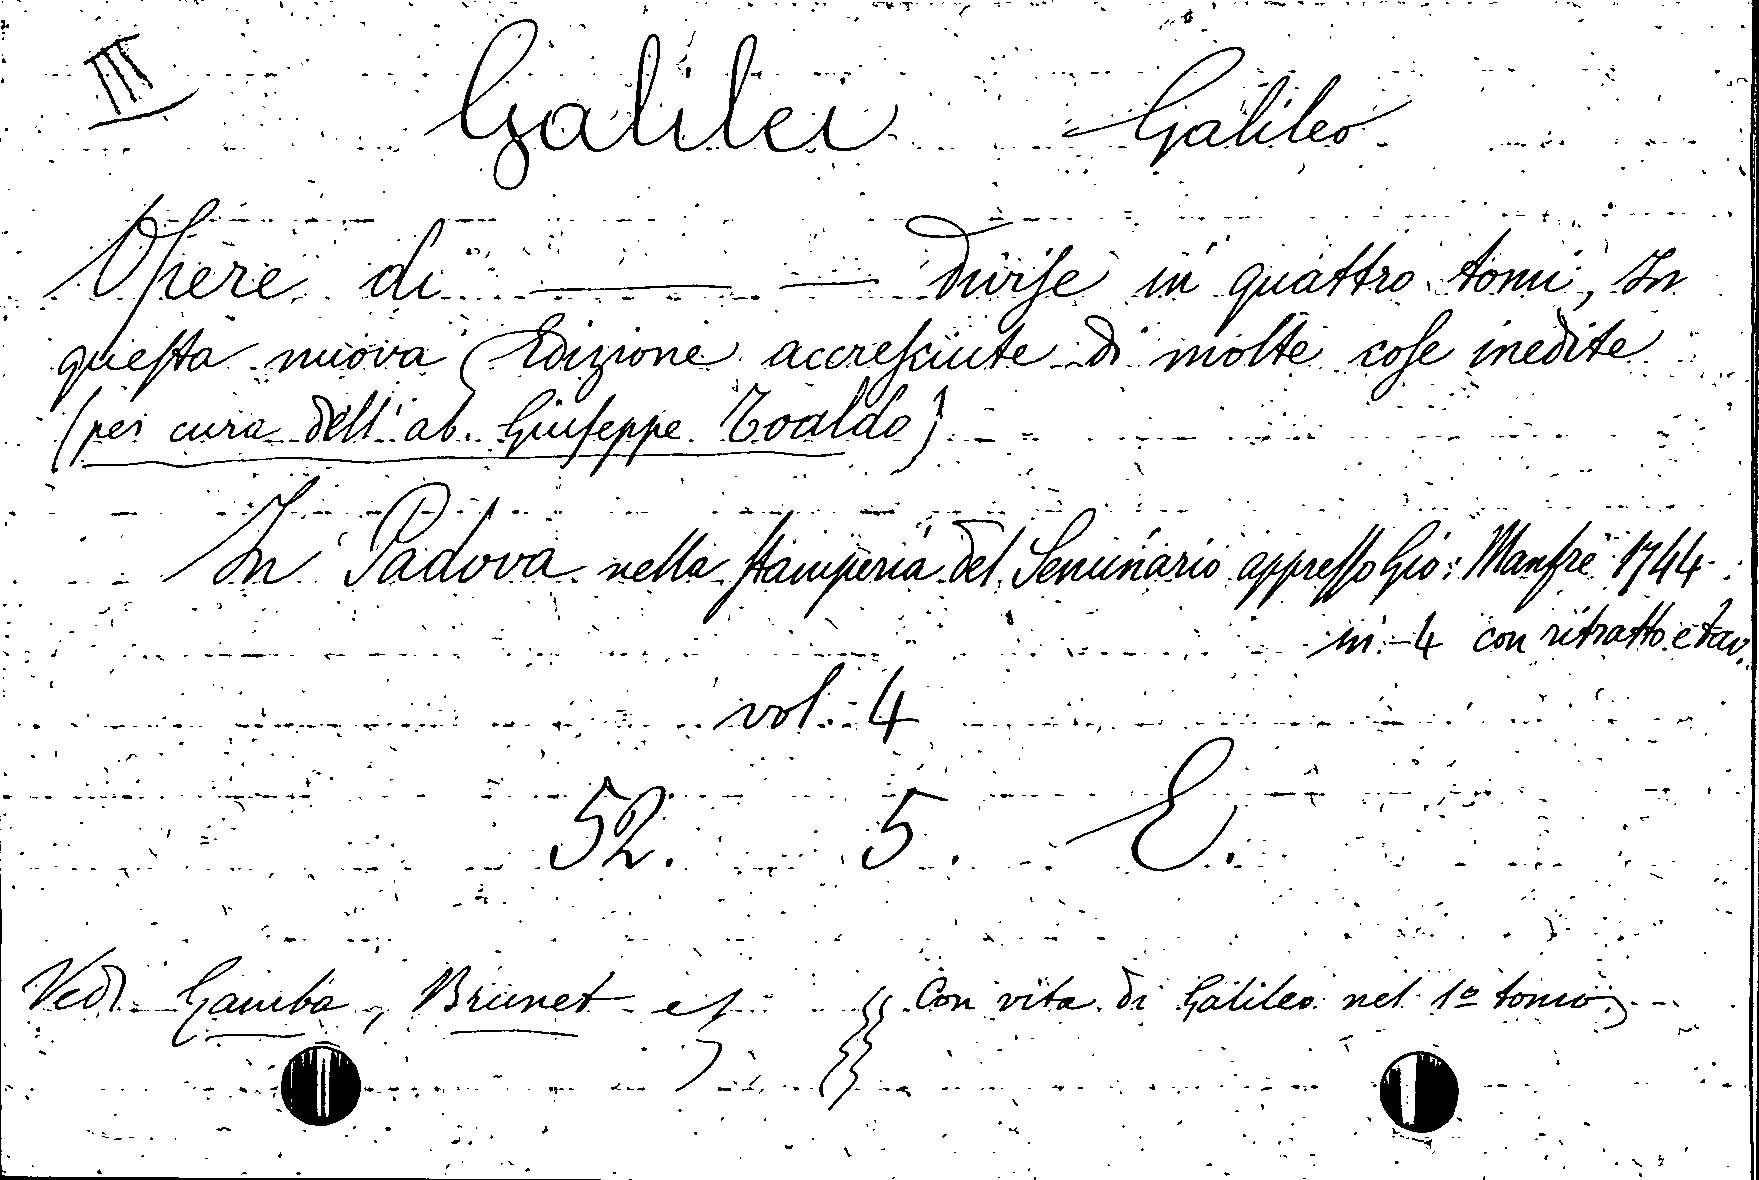 III
Galilei Galileo
Opere di ——— —— Divise in quattro tomi, In
questa nuova Edizione accresciute di molte cose inedite
(per cura dell'ab. Giuseppe Toaldo)
In Padova nella stamperia del Seminario appresso Gio: Manfrè 1744
in-4 con ritratto e tav.
vol. 4
52. 5. E.
Vedi Gamba, Brunet
Con vita di Galileo nel 1º tomo